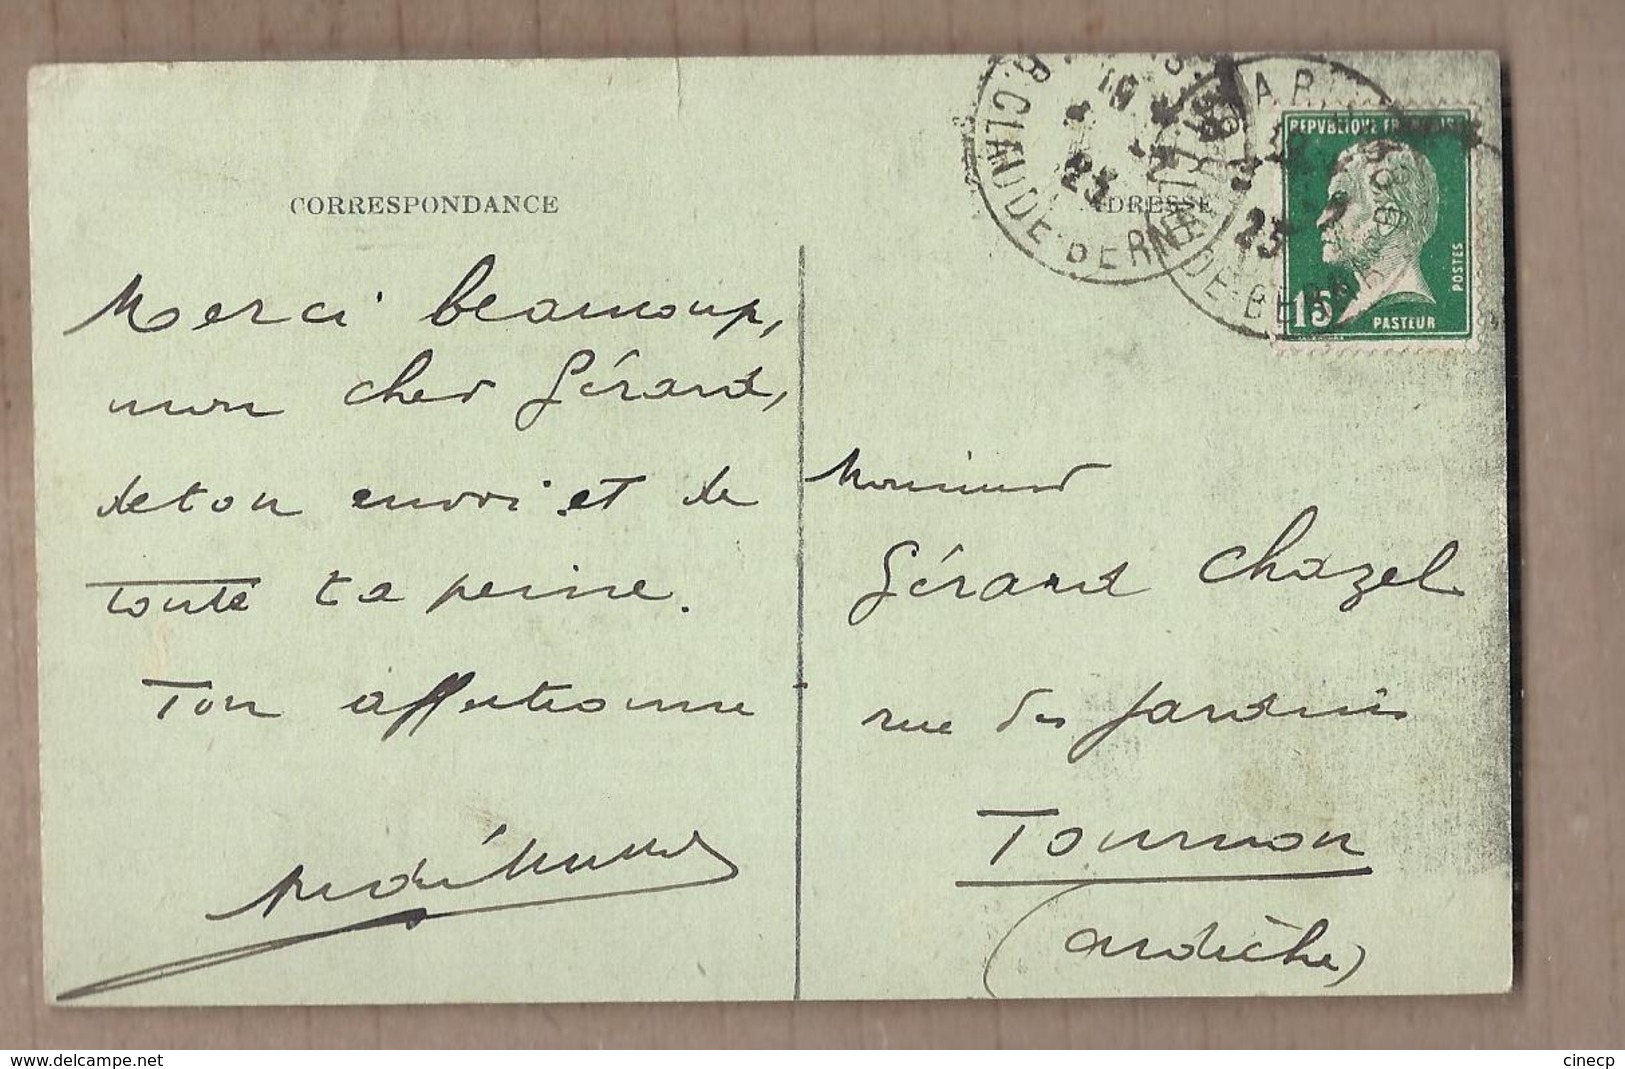 CORRESPONDANCE
Merci beaucoup,
mon cher Gérard,
de ton envoi et de
toute ta peine.
Ton affectionné
ADRESSE
R. CLAUDE-BERNARD
19
23
23
REPVBLIQUE FRANÇAISE
POSTES
15
PASTEUR
Monsieur
Gérard Chazel
rue des Jardins
Tournon
(Ardèche)
www.delcampe.net
cinecp